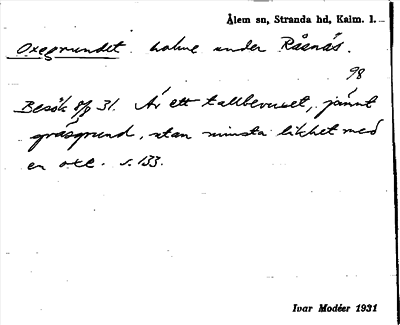 Ålem sn, Stranda hd, Kalm. l.
Oxegrundet. holme under Råsnäs.
98
Besök 8/7 31. Är ett tallbevuxet, jämnt
gräsgrund, utan minsta likhet med
en oxe. s. 133.
Ivar Modéer 1931